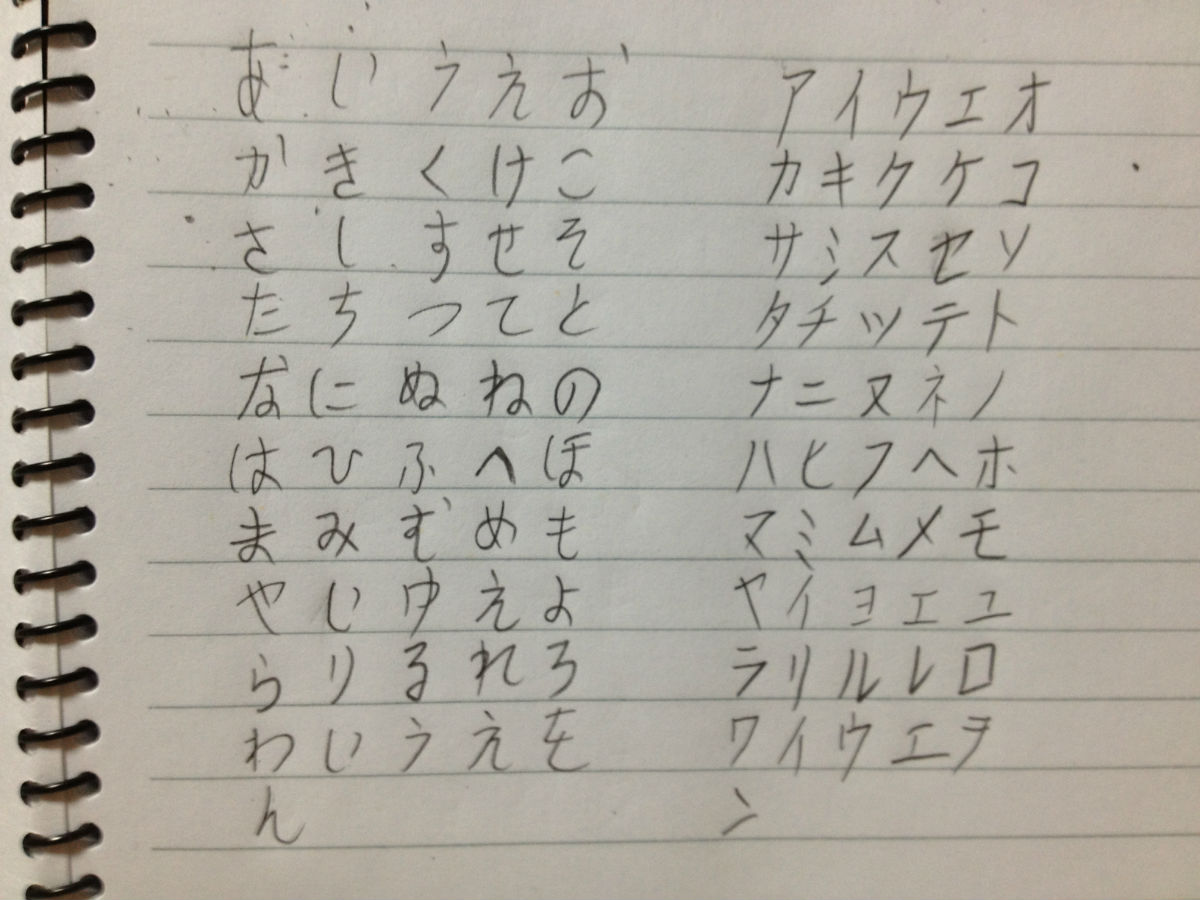 あいうえお アイウエオ
かきくけこ カキクケコ
さしすせそ サシスセソ
たちつてと タチツテト
なにぬねの ナニヌネノ
はひふへほ ハヒフヘホ
まみむめも マミムメモ
やいゆえよ ヤイヨエユ
らりるれろ ラリルレロ
わいうえを ワイウエヲ
ん ン